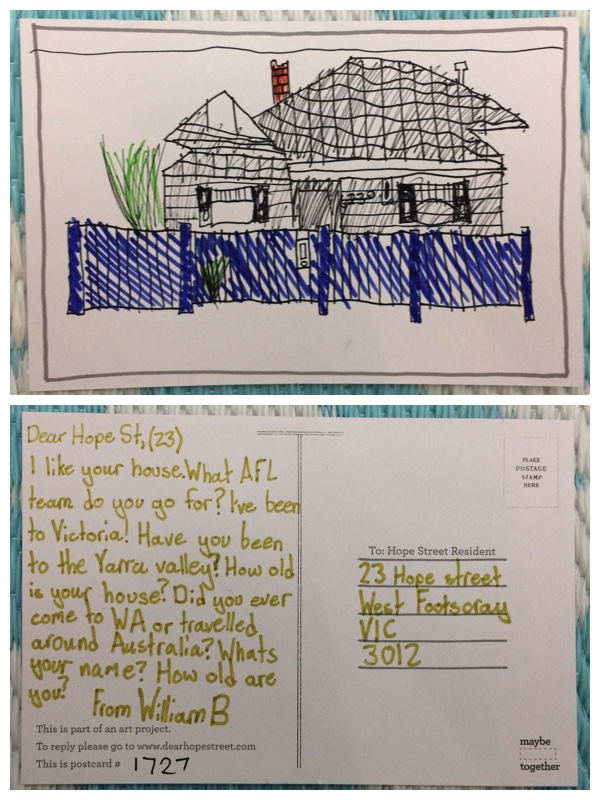 Dear Hope St, (23)
I like your house. What AFL
team do you go for? I've been
to Victoria! Have you been
to the Yarra valley? How old
is your house? Did you ever
come to WA or travelled
around Australia? Whats
your name? How old are
you?
From William B
This is part of an art project.
To reply please go to www.dearhopestreet.com
This is postcard # 1727
PLACE
POSTAGE
STAMP
HERE
To: Hope Street Resident
23 Hope street
West Footscray
VIC
3012
maybe
together